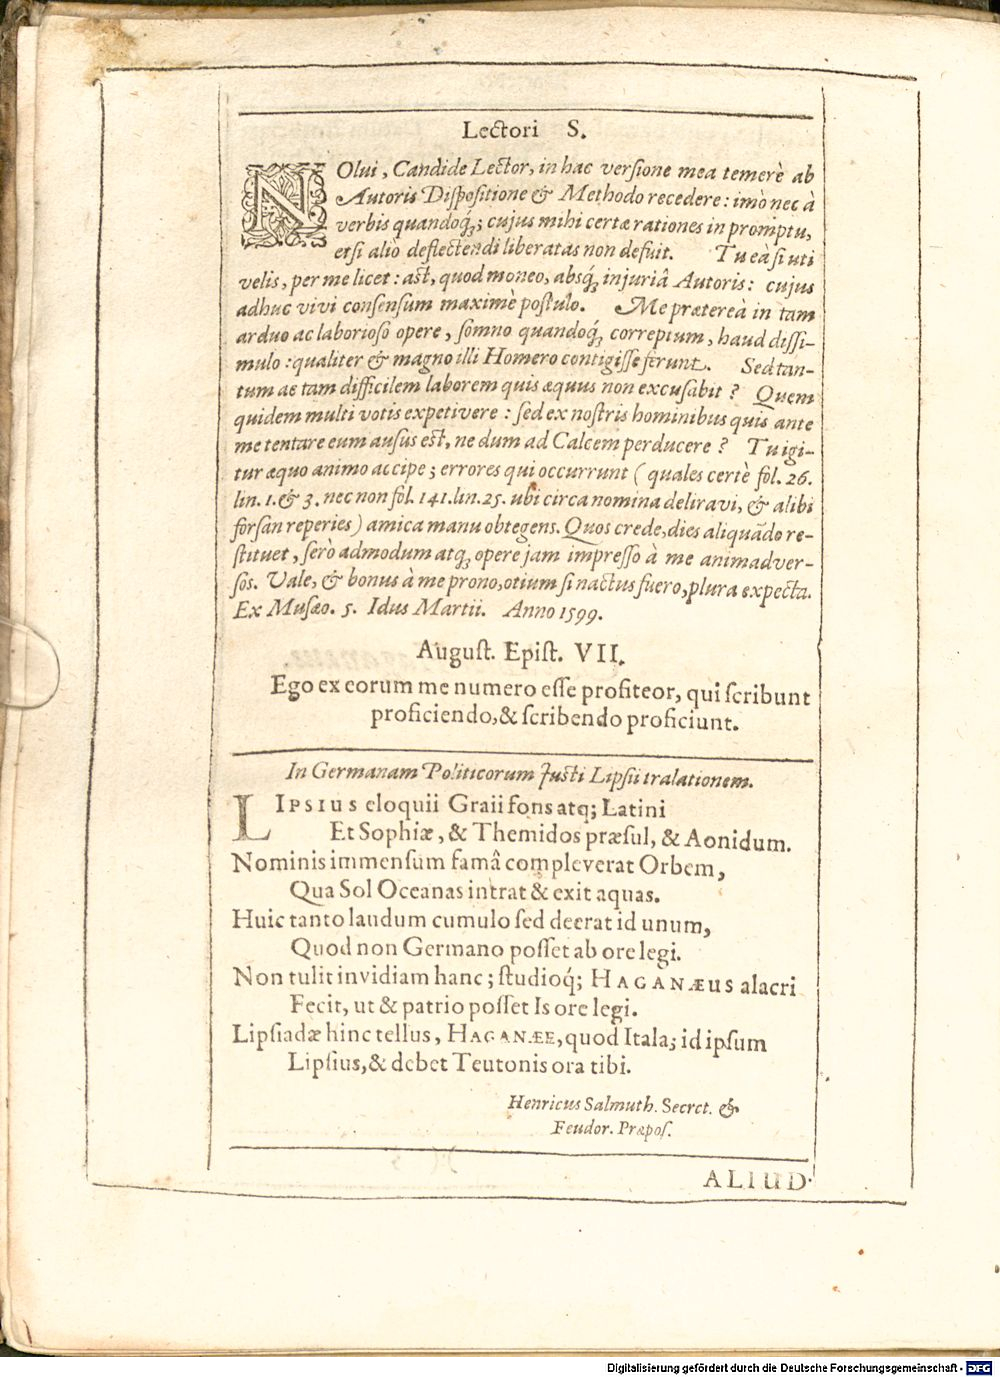 Lectori S.
NOlui, Candide Lector, in hac versione mea temerè ab
Autoris Dispositione & Methodo recedere: imò nec à
verbis quandoq́;; cujus mihi certæ rationes in promptu,
etsi alio deflectendi libertas non defuit. Tu eâ si uti
velis, per me licet: ast, quod moneo, absq́; injuriâ Autoris: cujus
adhuc vivi consensum maximè postulo. Me prætereà in tam
arduo ac laborioso opere, somno quandoq́; correptum, haud dissi-
mulo: qualiter & magno illi Homero contigisse ferunt. Sed tan-
tum ac tam difficilem laborem quis æquus non excusabit? Quem
quidem multi votis expetivere: sed ex nostris hominibus quis ante
me tentare eum ausus est, ne dum ad Calcem perducere? Tu igi-
tur æquo animo accipe; errores qui occurrunt (quales certè fol. 26.
lin. 1. & 3. nec non fol. 141. lin. 25. ubi circa nomina deliravi, & alibi
forsan reperies) amica manu obtegens. Quos crede, dies aliquādo re-
stituet, serò admodum atq; opere jam impresso à me animadver-
sos. Vale, & bonus à me prono, otium si nactus fuero, plura expecta.
Ex Musæo. 5. Idus Martii. Anno 1599.
August. Epist. VII.
Ego ex eorum me numero esse profiteor, qui scribunt
proficiendo, & scribendo proficiunt.
In Germanam Politicorum Justi Lipsii tralationem.
LIPSIUS eloquii Graii fons atq; Latini
Et Sophiæ, & Themidos præsul, & Aonidum.
Nominis immensum famâ compleverat Orbem,
Qua Sol Oceanas intrat & exit aquas.
Huic tanto laudum cumulo sed deerat id unum,
Quod non Germano posset ab ore legi.
Non tulit invidiam hanc; studioq́; HAGANÆUS alacri
Fecit, ut & patrio posset Is ore legi.
Lipsiadæ hinc tellus, HAGANÆE, quod Itala; id ipsum
Lipsius, & debet Teutonis ora tibi.
Henricus Salmuth. Secret. &
Feudor. Præpos.
ALIUD
Digitalisierung gefördert durch die Deutsche Forschungsgemeinschaft - DFG